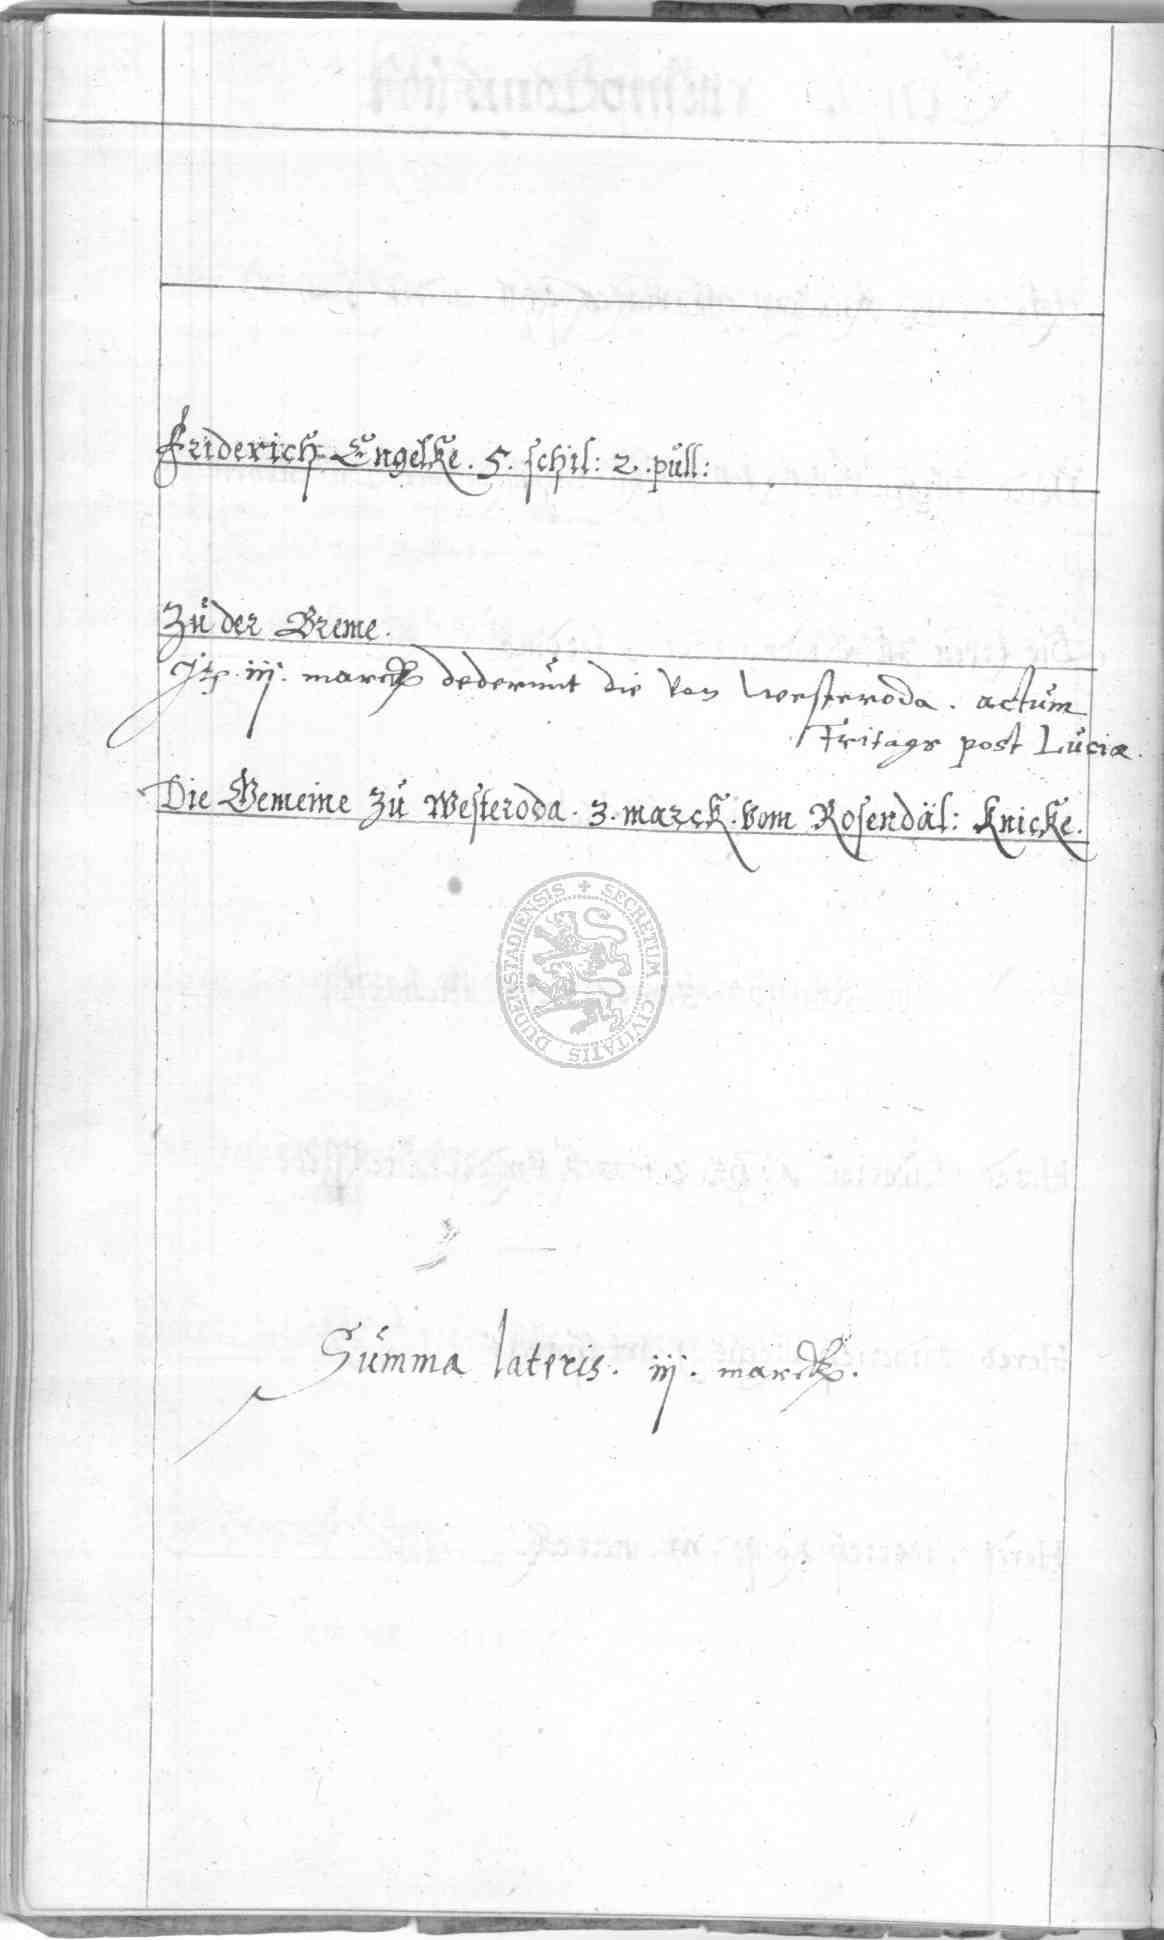 Friderich Engelke. 5. schil: 2. pull:
Zu der Breme.
It iij. marck dederunt die von Westeroda. actum
Fritags post Lucia.
Die Gemeine zu Westeroda. 3. marck. vom Rosendäl: Knicke.
SECRETUM CIVITATIS DUDERSTADIENSIS
Summa lateris. iij. marck.